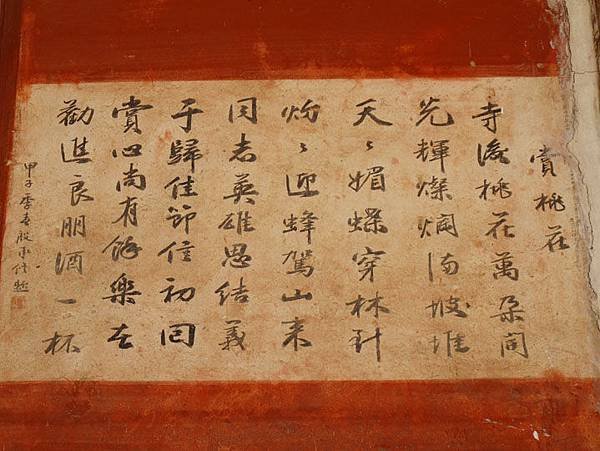 賞桃花
寺後桃花萬朵開
光輝燦爛滿坡堆
夭〻媚蝶穿林到
灼〻迎蜂駕山來
同志英雄思結義
于歸佳節信初回
賞心尚有餘樂在
勸進良朋酒一杯
甲子季春殷